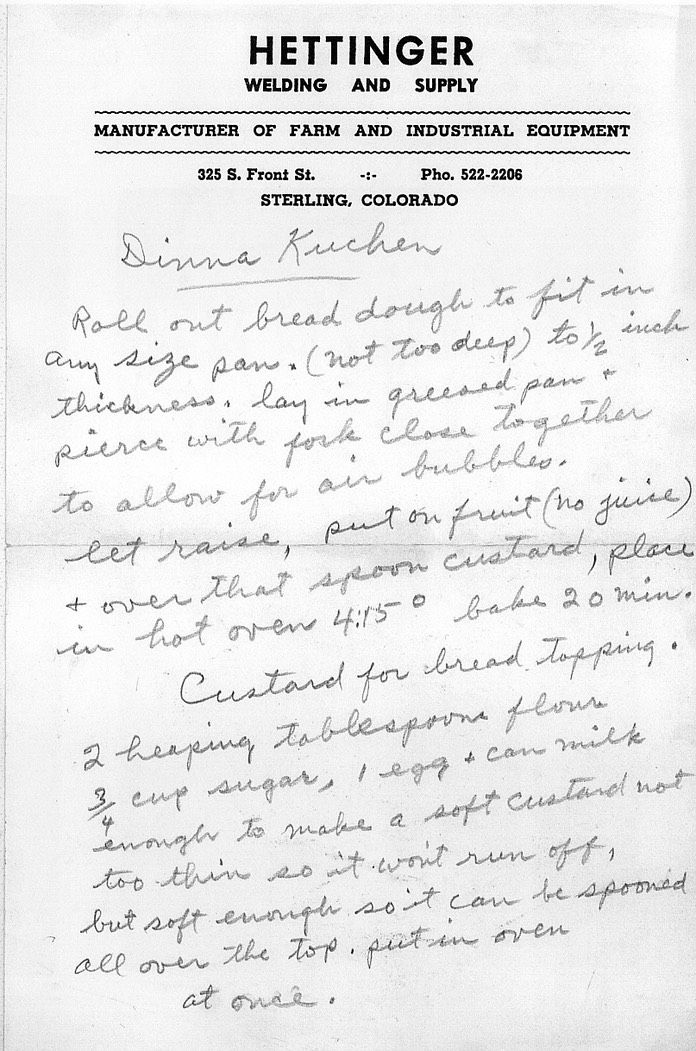 HETTINGER
WELDING AND SUPPLY
MANUFACTURER OF FARM AND INDUSTRIAL EQUIPMENT
325 S. Front St. -:- Pho. 522-2206
STERLING, COLORADO
Dinna Kuchen
Roll out bread dough to fit in
any size pan. (not too deep) to 1/2 inch
thickness. lay in greesed pan +
pierce with fork close together
to allow for air bubbles.
let raise, put on fruit (no juice)
+ over that spoon custard, place
in hot oven 4:15° bake 20 min.
Custard for bread topping.
2 heaping tablespoons flour
3/4 cup sugar, 1 egg + can milk
enough to make a soft custard not
too thin so it won't run off,
but soft enough so it can be spooned
all over the top. put in oven
at once.